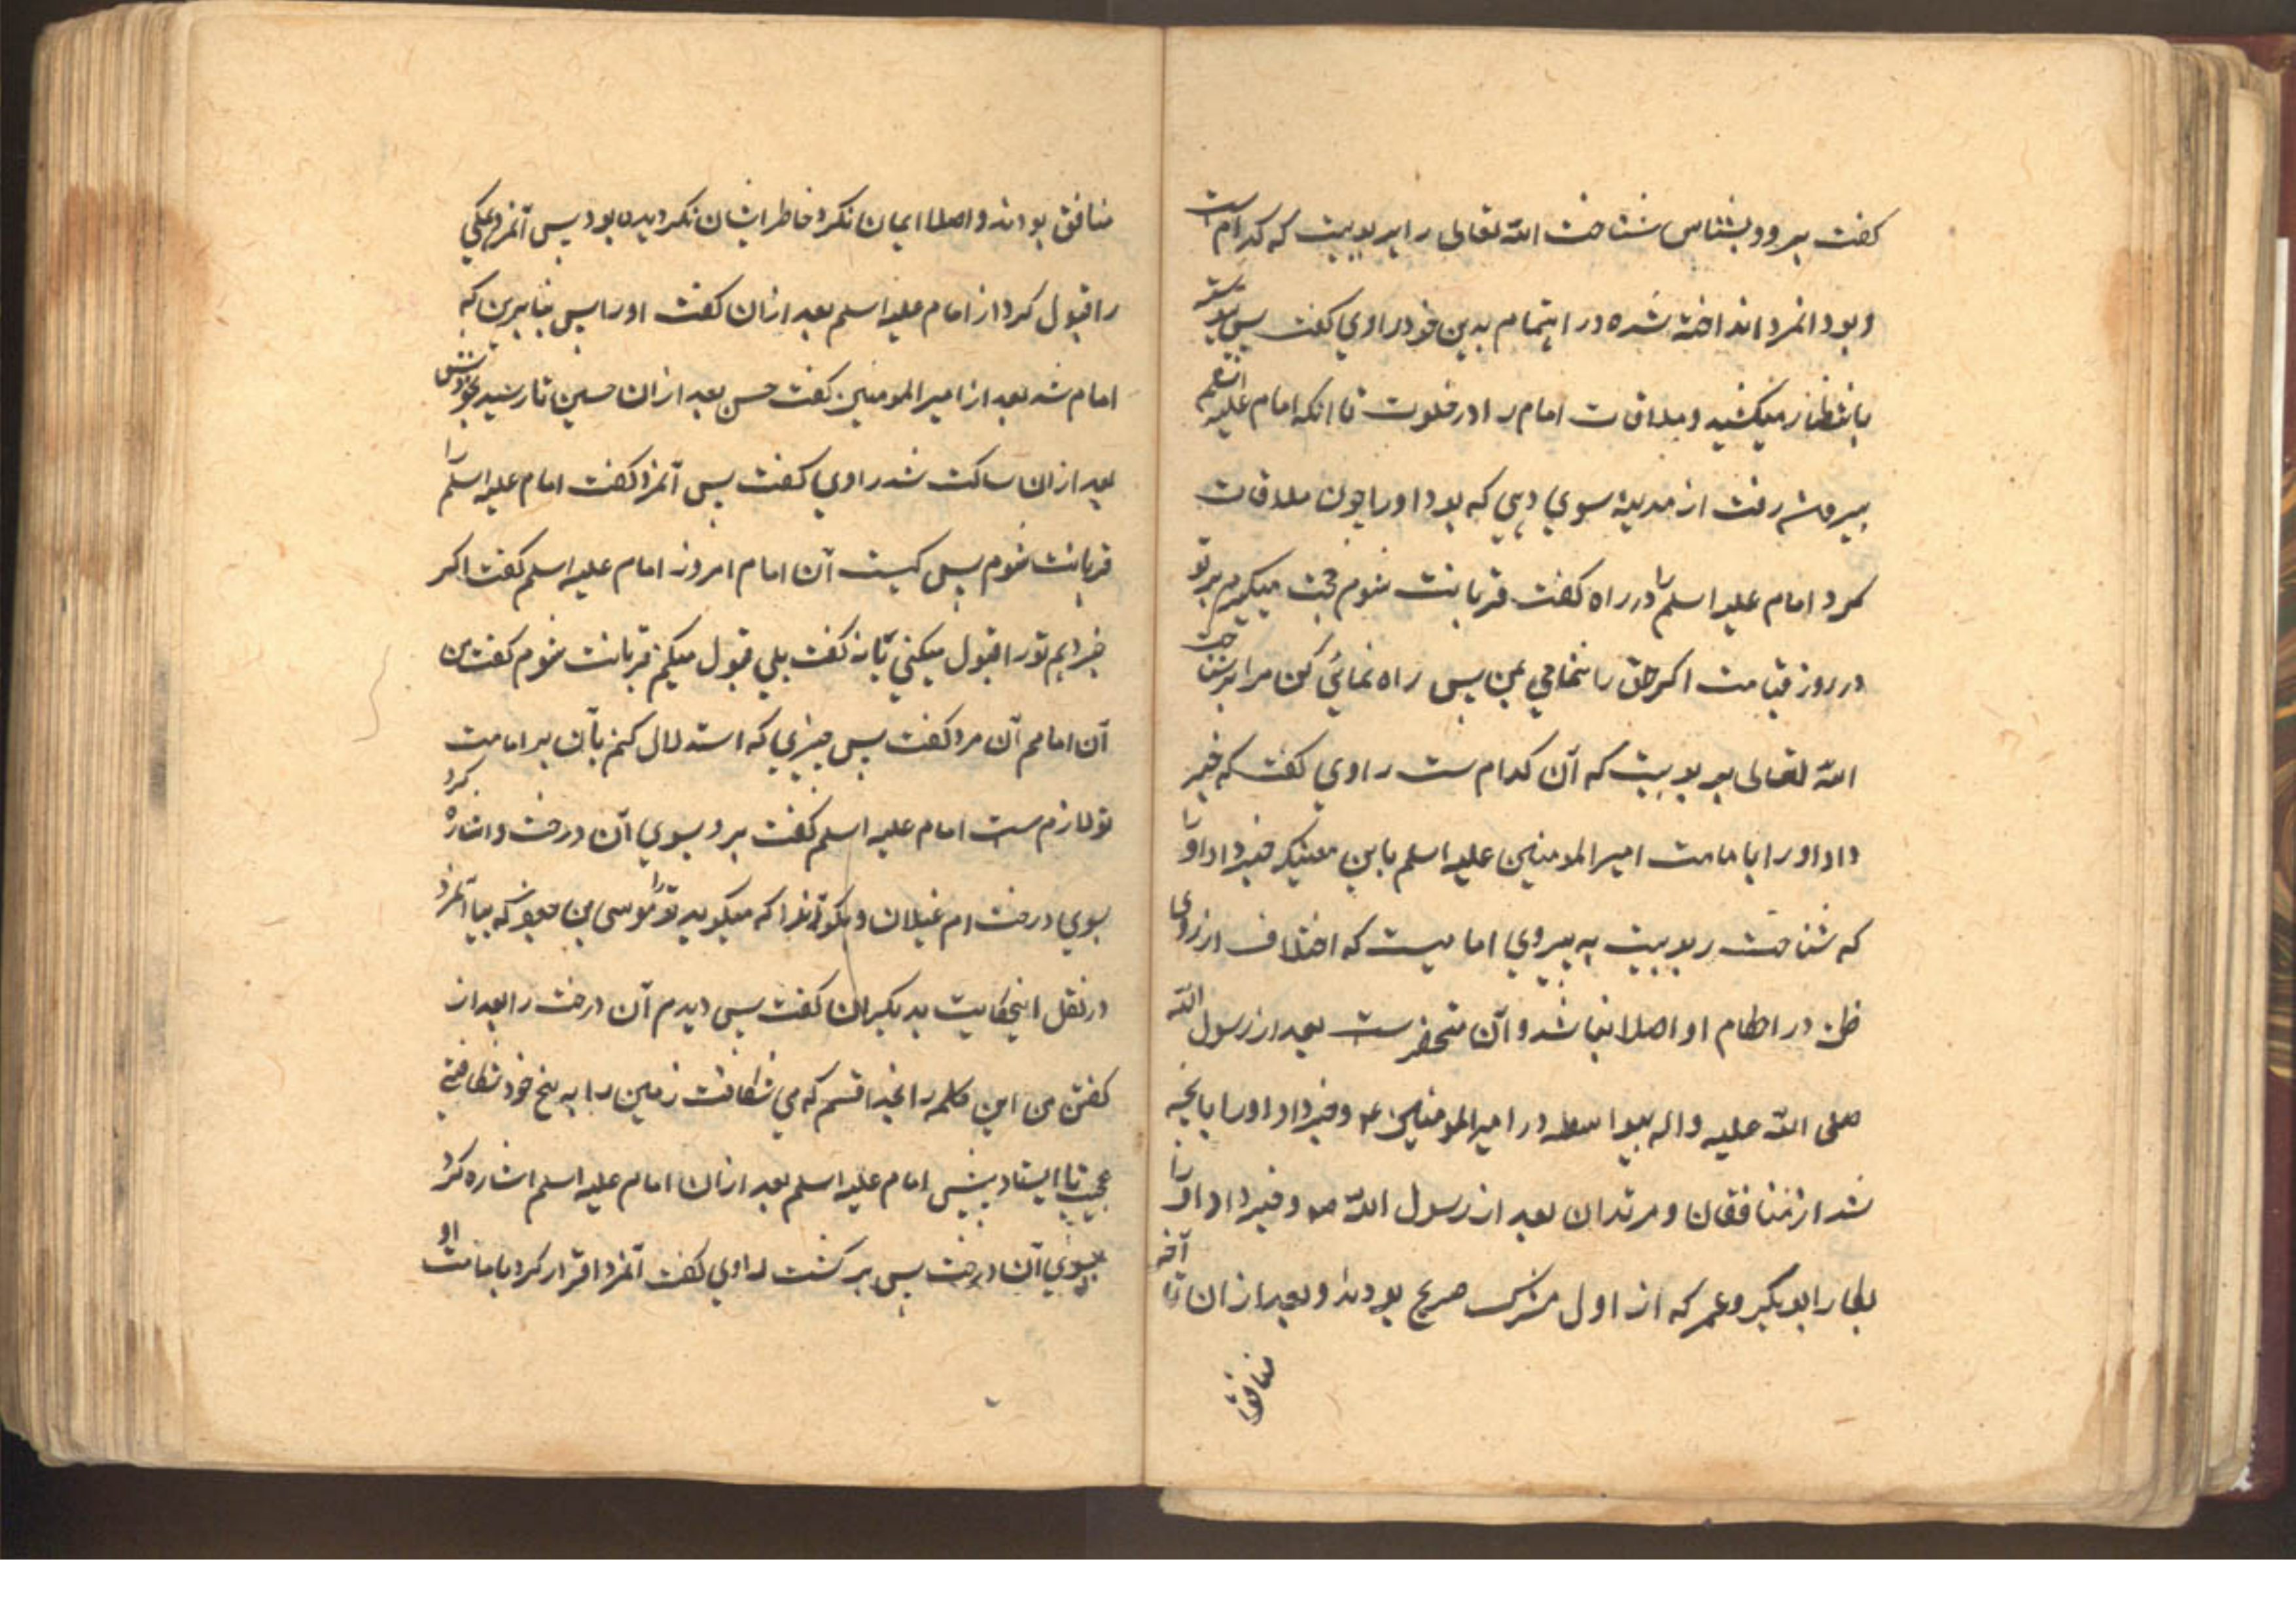 کفت برو و بشناس شناخت الله تعالی را بربوبیت که کدام است
و بود انمرد انداخته شده در اهتمام بدین خود راوی کفت پس پیوسته
بانتظار میکشید و ملاقات امام را در خلوت تا انکه امام علیه السلم
بیرون رفت از مدینه سوی دهی که بود او را چون ملاقات
کرد امام علیه السلم را در راه کفت قربانت شوم حجت میکیرم بر تو
در روز قیامت اکر حق را ننمائی بمن پس راه نمائی کن مرا بر شناخت
الله تعالی بربوبیت که آن کدام ست راوی کفت که خبر
داد او را بامامت امیر المومنین علیه السلم باین معنی که خبر داد او را
که شناخت ربوبیت به پیروی امامیست که اختلاف از روی
ظن در احکام او اصلا نباشد و آن منحصر ست بعد از رسول الله
صلی الله علیه و اله بیواسطه در امیر المومنین ع و خبر داد او را بانچه
شد از منافقان و مرتدان بعد از رسول الله ص و خبر داد او را
بکار ابو بکر و عمر که از اول مشرک صریح بودند و بعد از ان تا آخر
منافق
منافق بودند و اصلا ایمان نکرد خاطر ایشان نکردیده بود پس آنمرد همکی
را قبول کرد از امام علیه السلم بعد از ان کفت او را پس بنابرین که
امام شد بعد از امیر المومنین کفت حسن بعد از ان حسین تا رسید بخودش
بعد از ان ساکت شد راوی کفت پس آنمرد کفت امام علیه السلم را
قربانت شوم پس کیست آن امام امروز امام علیه السلم کفت اکر
خبر دهم تو را قبول میکنی یا نه کفت بلی قبول میکنم قربانت شوم کفت من
آن امامم آن مرد کفت پس چیزی که استدلال کنم بآن بر امامت
تو لازم ست امام علیه السلم کفت برو بسوی آن درخت و اشاره کرد
بسوی درخت ام غیلان و بکو آنرا که میکوید تو را موسی بن جعفر که بیا آنمرد
در نقل اینحکایت بدیکران کفت پس دیدم آن درخت را بعد از
کفتن من این کلمه را بخدا قسم که می شکافت زمین را به بیخ خود شکافتنی
عجیب تا ایستاد پیش امام علیه السلم بعد از ان امام علیه السلم اشاره کرد
بسوی آن درخت پس برکشت راوی کفت آنمرد اقرار کرد بامامت او